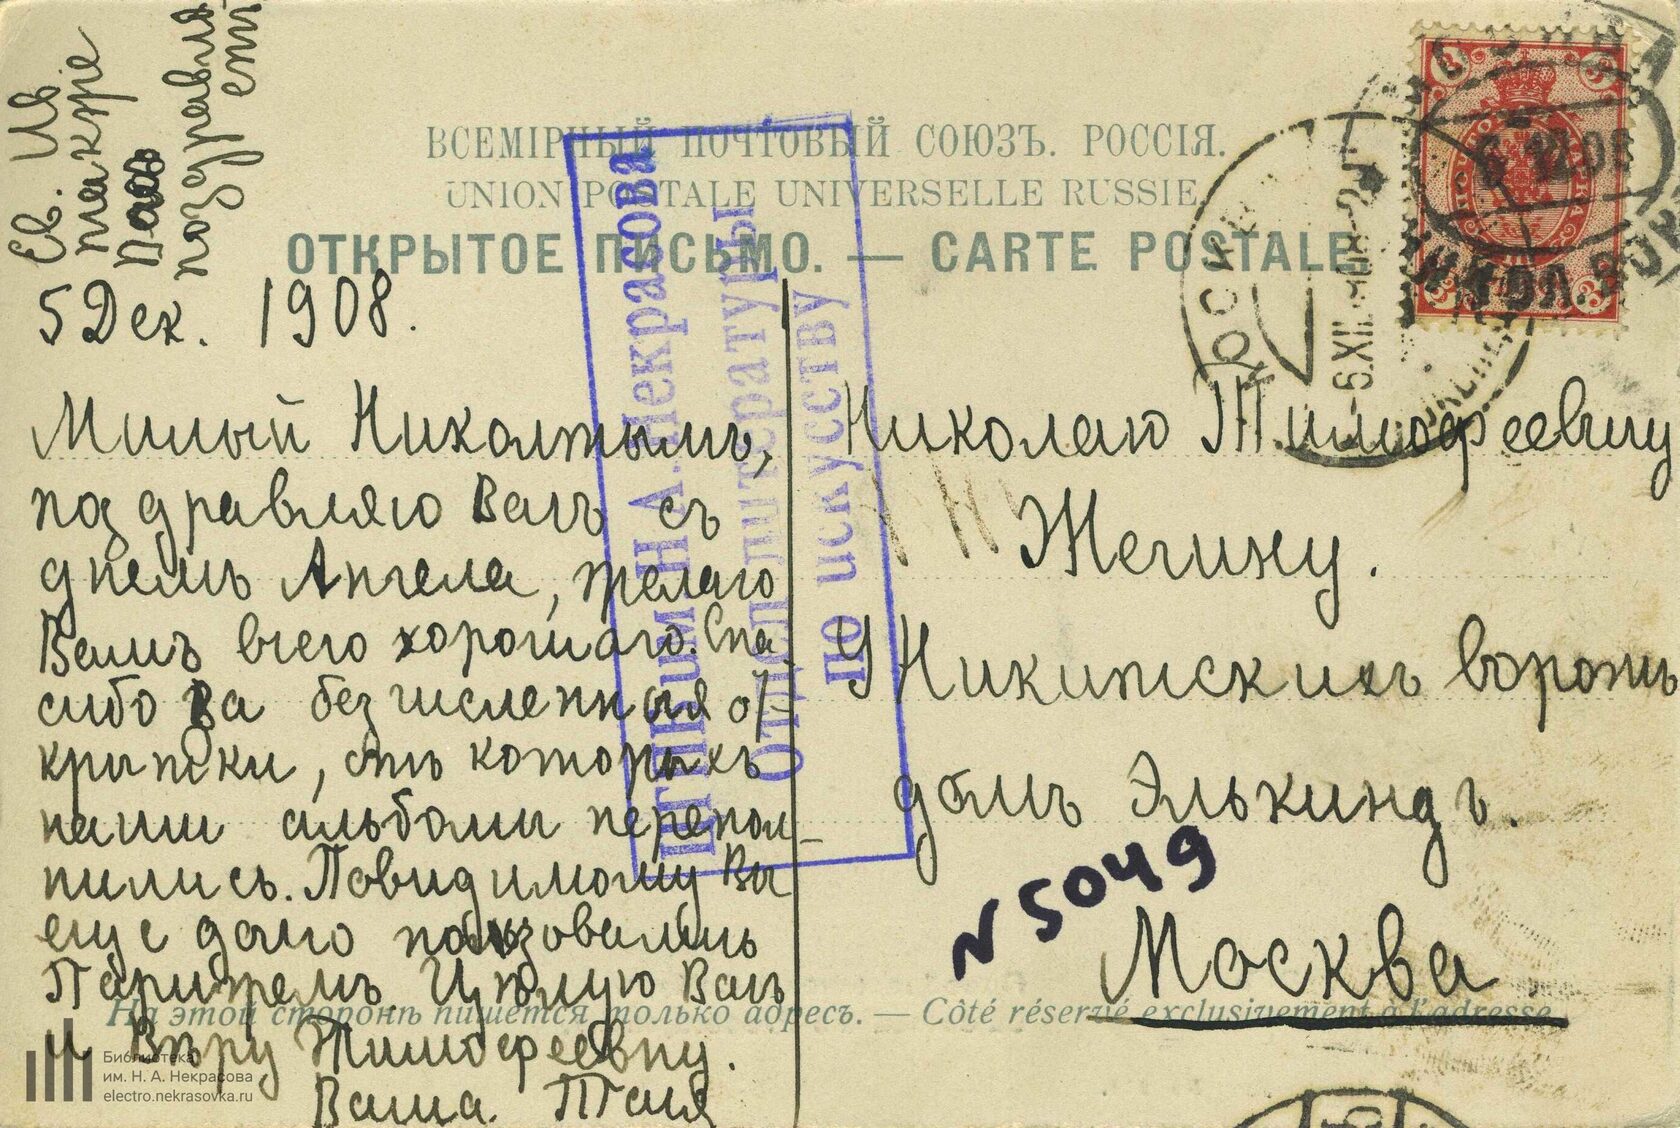 Ев. Ив
также
Вас
поздравля
ет
ВСЕМІРНЫЙ ПОЧТОВЫЙ СОЮЗЪ. РОССІЯ.
UNION POSTALE UNIVERSELLE RUSSIE.
ОТКРЫТОЕ ПИСЬМО. — CARTE POSTALE.
5 Дек. 1908.
Милый Николтымъ,
поздравляю Васъ съ
днемъ Ангела, желаю
Вамъ всего хорошаго. Спа
сибо за безчисленныя от
крытки, отъ которыхъ
наши альбомы перепол-
нились. Повидимому Вы
еще долго пользовались
Парижемъ. Цѣлую Васъ
и Вѣру Тимофеевну.
Ваша Таня
Николаю Тимофеевичу
Жегину.
У Никитскихъ воротъ
домъ Элькиндъ.
N 5049
Москва
На этой сторонѣ пишется только адресъ. — Côté réservé exclusivement à l'adresse.
ЦГПБ им. Н.А. Некрасова
Отдел литературы
по искусству
МОСКВА
6 12 08
Библиотека
им. Н. А. Некрасова
electro.nekrasovka.ru